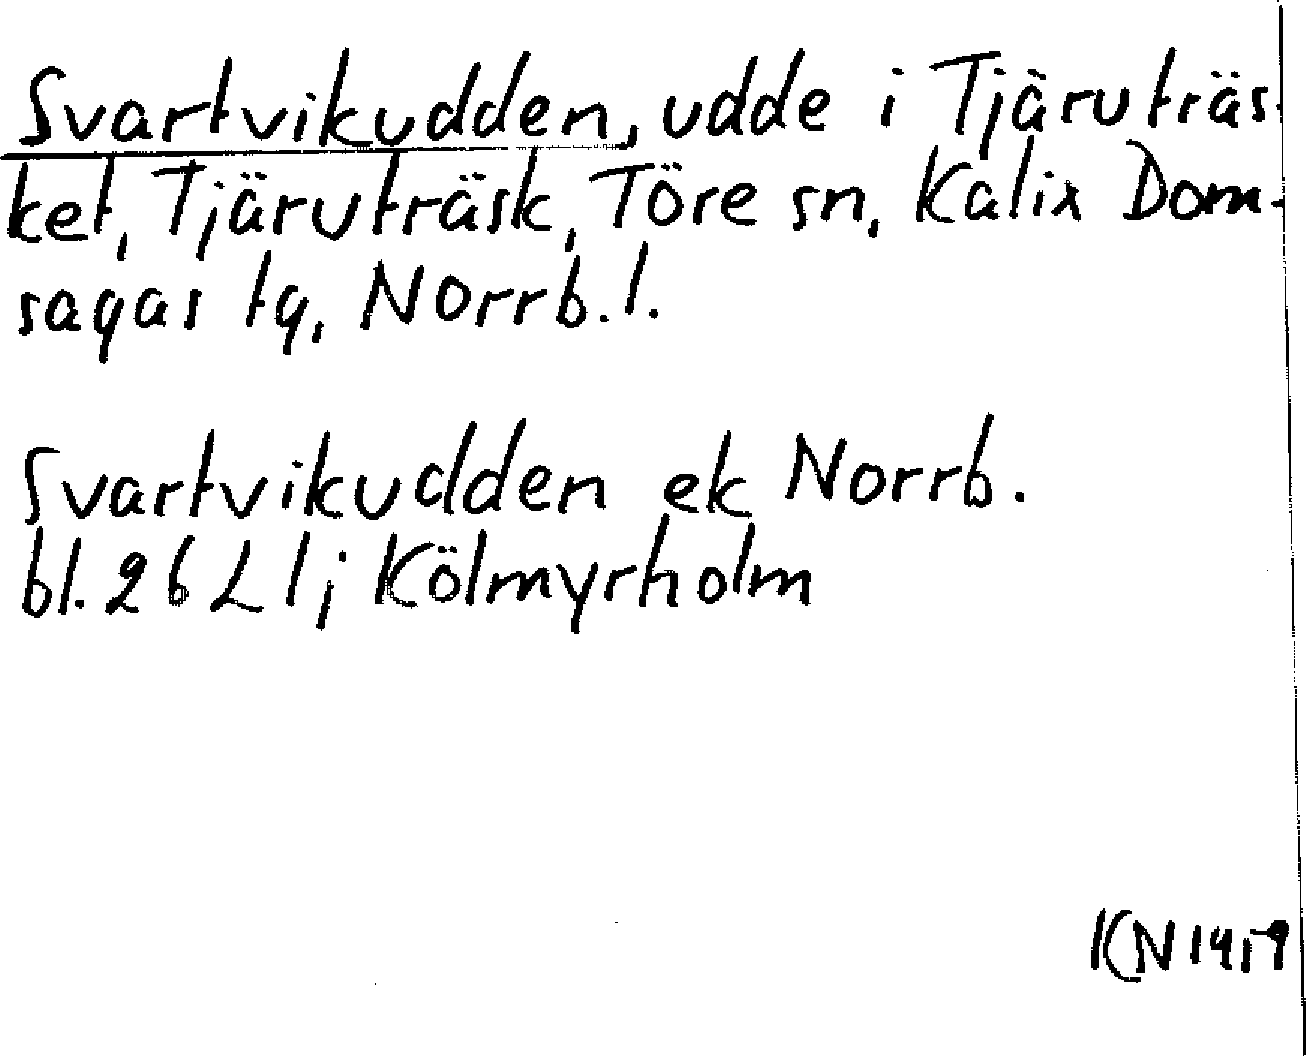 Svartvikudden, udde i Tjäruträs-
ket, Tjäruträsk, Töre sn, Kalix Dom-
sagas tg, Norrb. l.
Svartvikudden ek Norrb.
bl. 26 L 1; Kölmyrholm
KN 1959